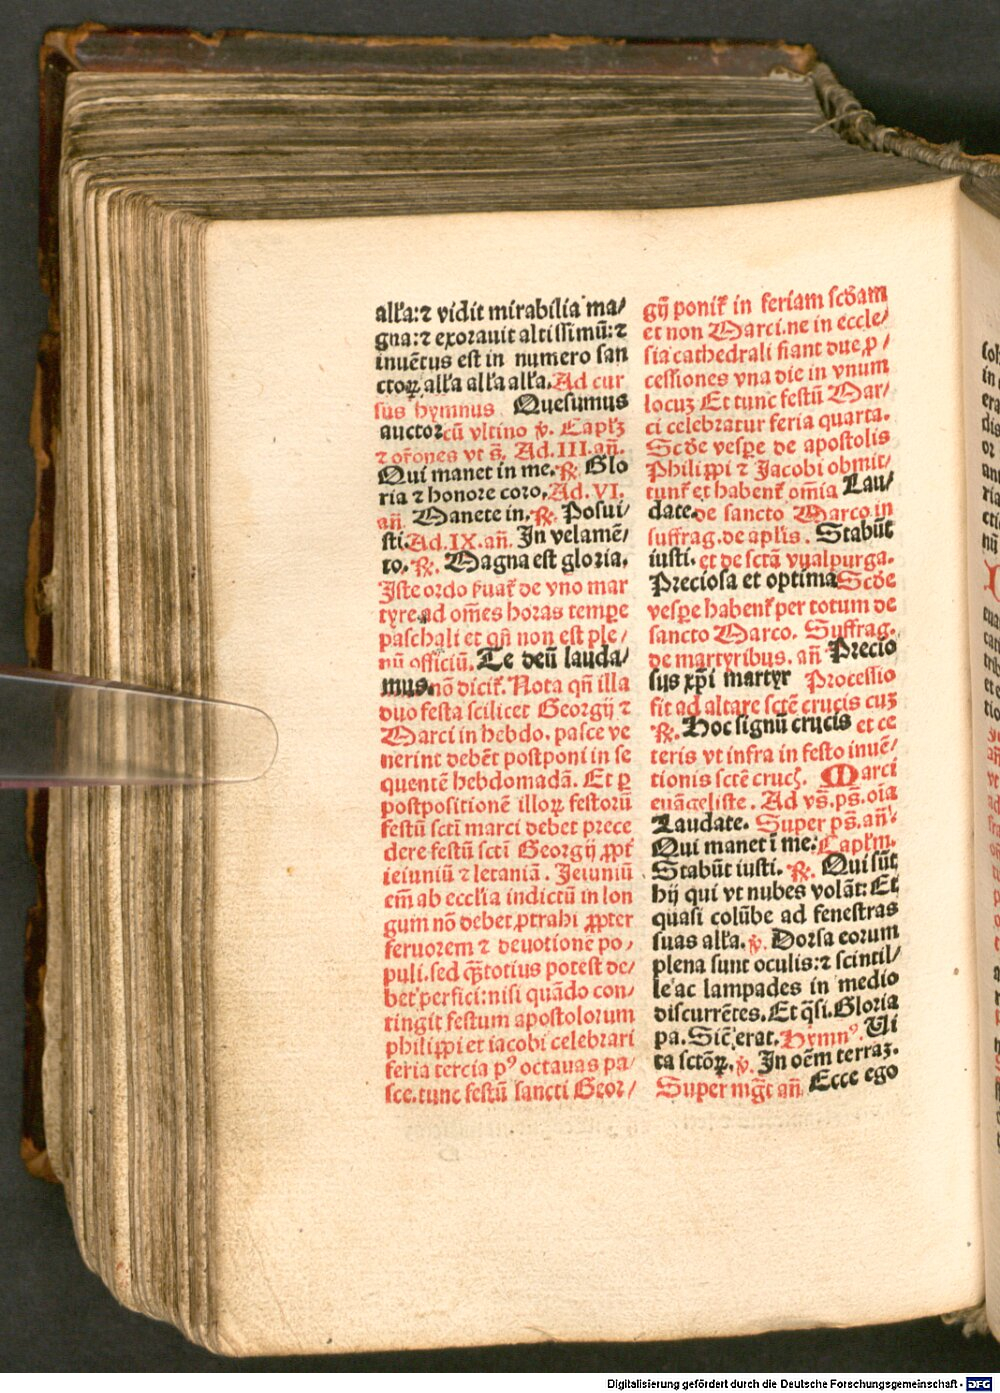 allʼa: ⁊ vidit mirabilia ma/
gna: ⁊ exorauit altissimū: ⁊
inuētus est in numero san
ctoꝝ allʼa allʼa allʼa. Ad cur
sus hymnus Quesumus
auctor cū vltino ꝟ. Caplꝫ
⁊ oronēs vt s̄. Ad. III. an̄.
Qui manet in me. ℟. Glo
ria ⁊ honore coro. Ad. VI.
an̄ Manete in. ℟. Posui/
sti. Ad. IX. an̄. In velamē/
to. ℟. Magna est gloria.
Iste ordo ẜuatʼ de vno mar
tyre ad om̄es horas tempe
paschali et qn̄ non est ple/
nū officiū. Te deū lauda/
mus. nō dicitʼ. Nota qn̄ illa
duo festa scilicet Georgij ⁊
Marci in hebdo. pasce ve
nerint debēt postponi in se
quentē hebdomadā. Et ꝑ
postpositionē illoꝝ festorū
festū scti marci debet prece
dere festū scti Georgij ꝓptʼ
ieiuniū ⁊ letaniā. Ieiuniū
em̄ ab ecclʼia indictū in lon
gum nō debet ꝓtrahi ꝓpter
feruorem ⁊ deuotione po/
puli. sed qꝫtotius potest de/
bet perfici: nisi quādo con/
tingit festum apostolorum
philippi et iacobi celebrari
feria tercia pꝰ octauas pa/
sce. tunc festū sancti Geor/
gij ponitʼ in feriam scd̄am
et non Marci. ne in eccle/
sia cathedrali fiant due ꝓ/
cessiones vna die in vnum
locuꝫ Et tunc festū Mar/
ci celebratur feria quarta.
Scd̄e vesꝑe de apostolis
Philippi ⁊ Jacobi obmit/
tuntʼ et habentʼ om̄ia Lau/
date. de sancto Marco in
suffrag. de aplʼis. Stabūt
iusti. et de sctā vualpurga.
Preciosa et optima Scd̄e
vesꝑe habentʼ per totum de
sancto Marco. Suffrag.
de martyribus. an̄ Precio
sus xp̄i martyr Processio
fit ad altare sctē crucis cuꝫ
℟. Hoc signū crucis et ce
teris vt infra in festo inuē/
tionis sctē crucꝭ. Marci
euāgeliste. Ad vs̄. ps̄. oīa
Laudate. Super ps̄. an̄
Qui manet ī me. Caplʼm.
Stabūt iusti. ℟. Qui sūt
hij qui vt nubes volāt: Et
quasi colūbe ad fenestras
suas allʼa. ꝟ. Dorsa eorum
plena sunt oculis: ⁊ scintil/
le ac lampades in medio
discurrētes. Et q̄si. Gloria
pa. Sic̄ erat. Hymnꝰ. Ui
ta sctōꝝ. ꝟ. In oēm terraꝫ.
Super mg̅t an̄ Ecce ego
Digitalisierung gefördert durch die Deutsche Forschungsgemeinschaft - DFG